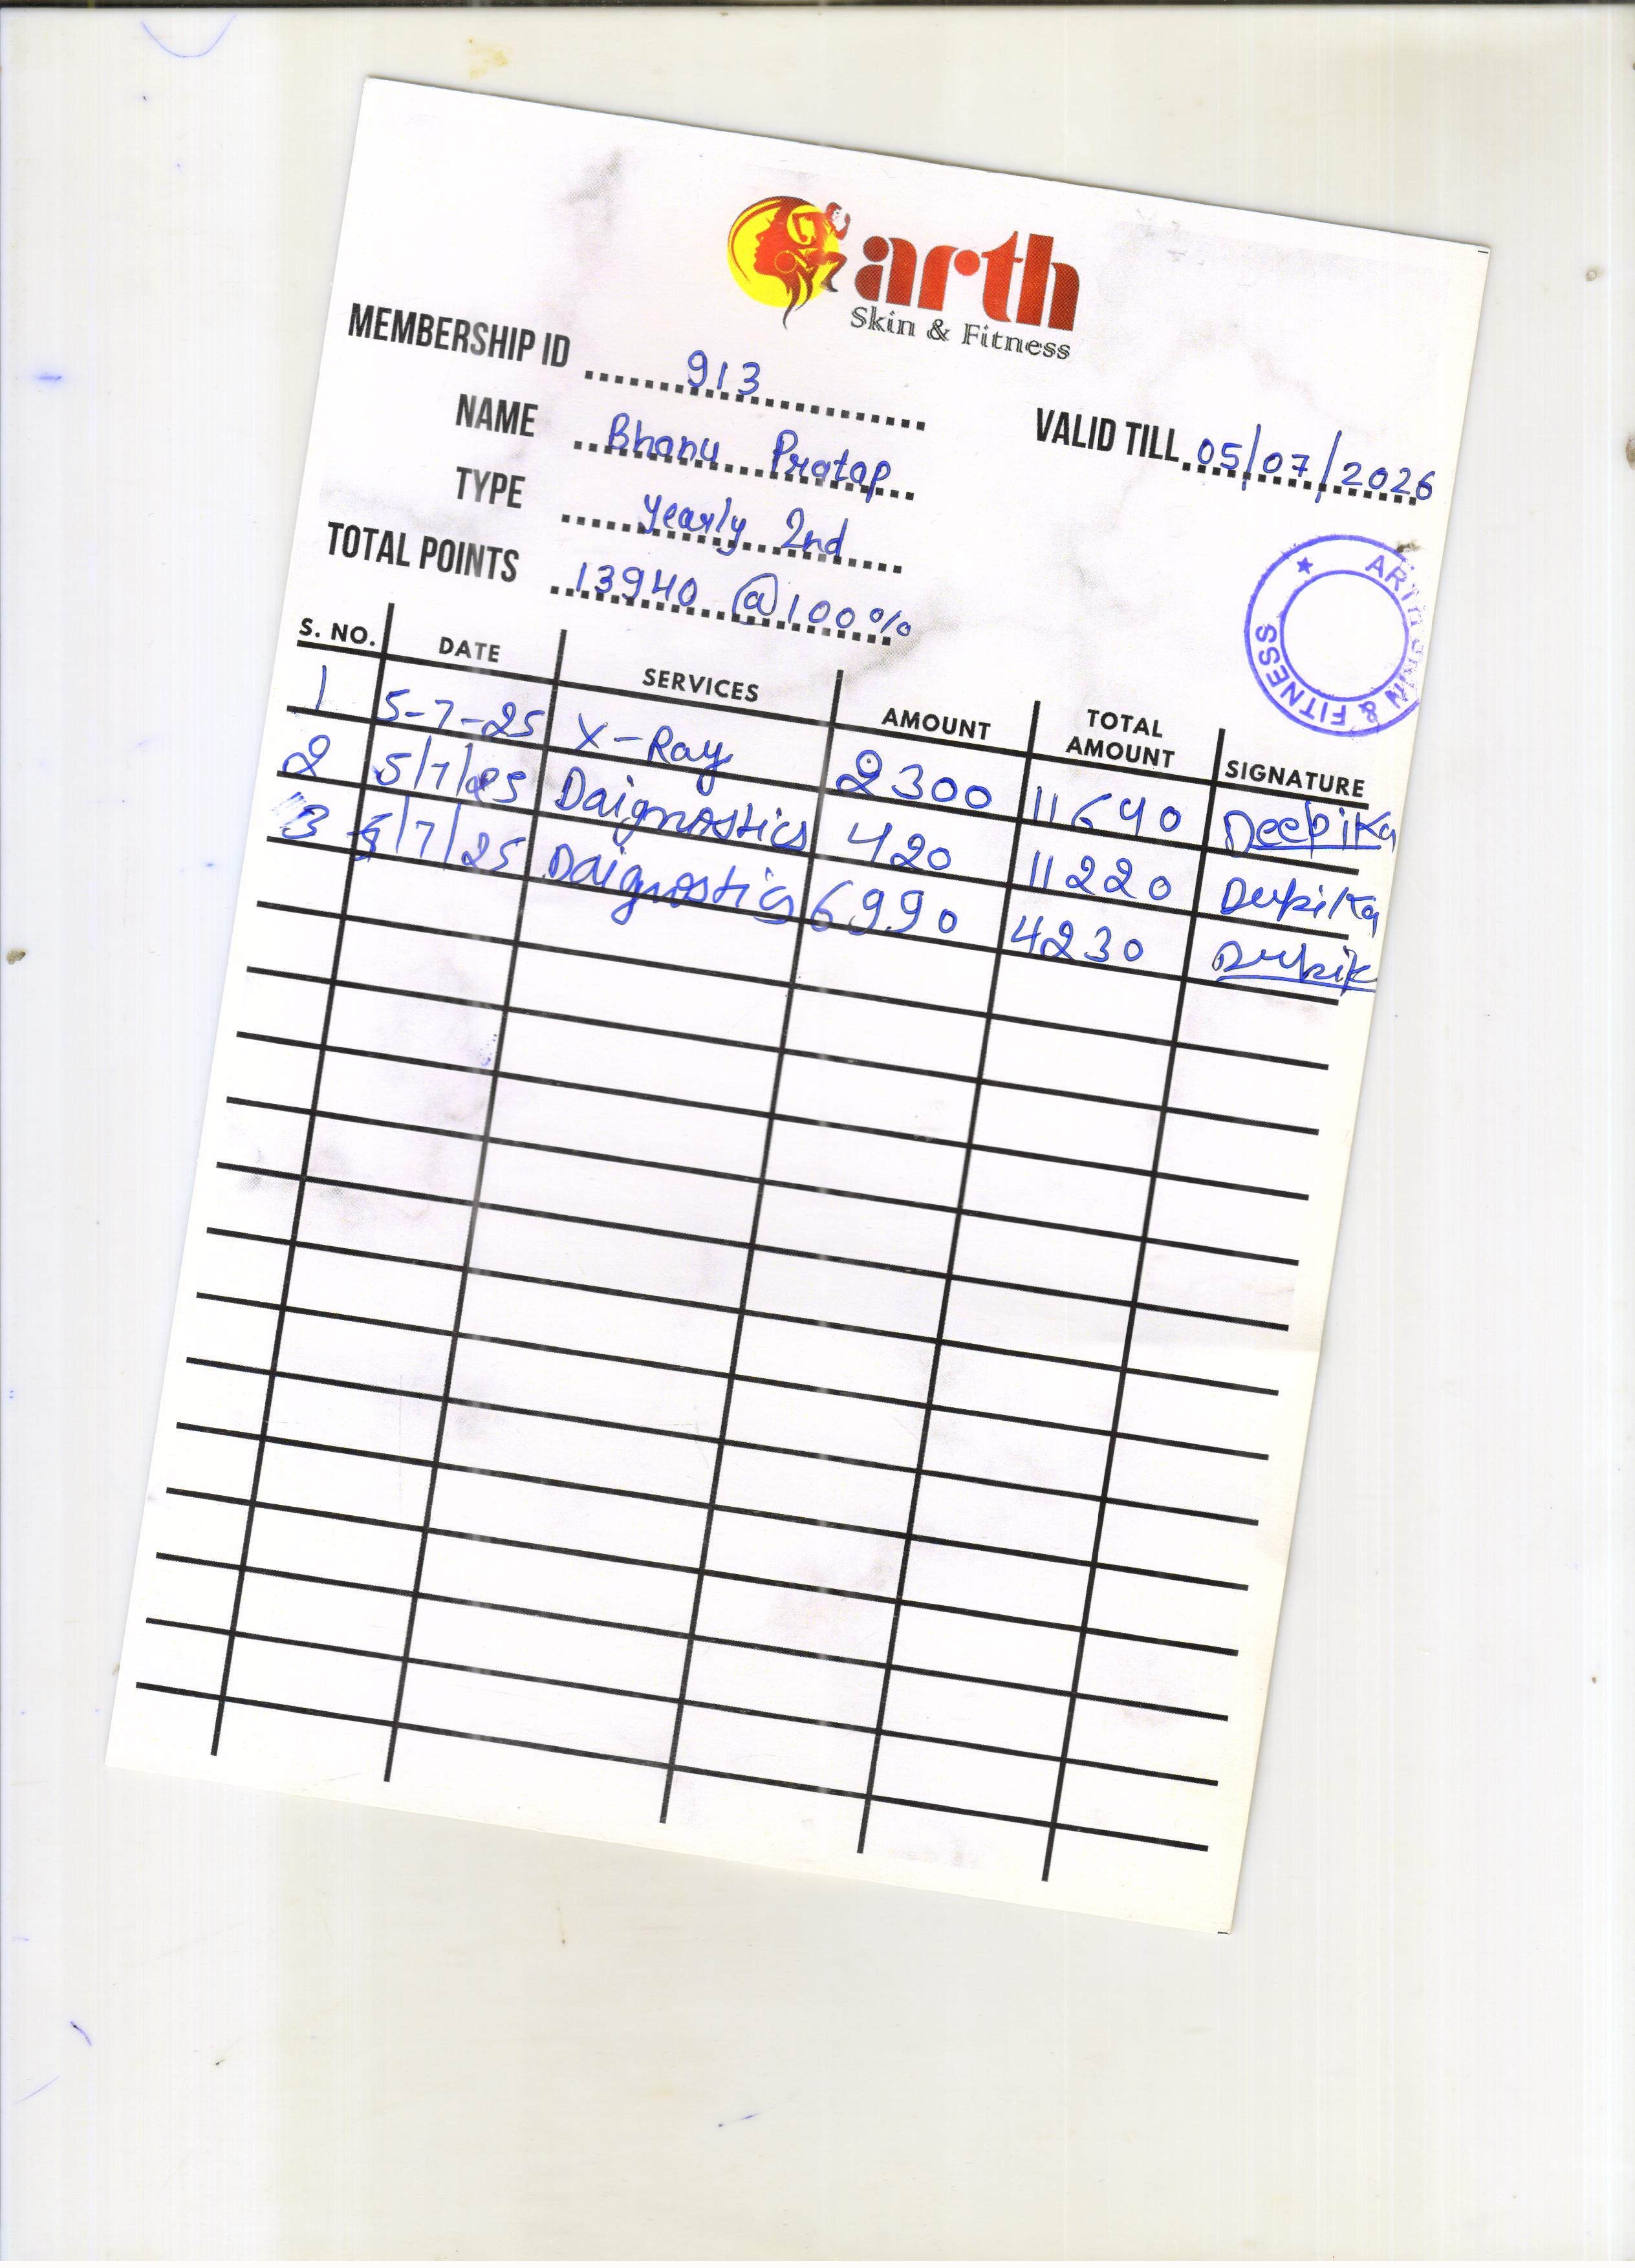 arth
Skin & Fitness
MEMBERSHIP ID 913
NAME Bhanu Pratap
VALID TILL 05/07/2026
TYPE Yearly 2nd
TOTAL POINTS 13940 @100%
ARTH SKIN & FITNESS
S. NO. DATE SERVICES AMOUNT TOTAL AMOUNT SIGNATURE
1 5-7-25 X-Ray 2300 11640 Deepika
2 5/7/25 Daignostics 420 11220 Deepika
3 5/7/25 Daignostics 6990 4230